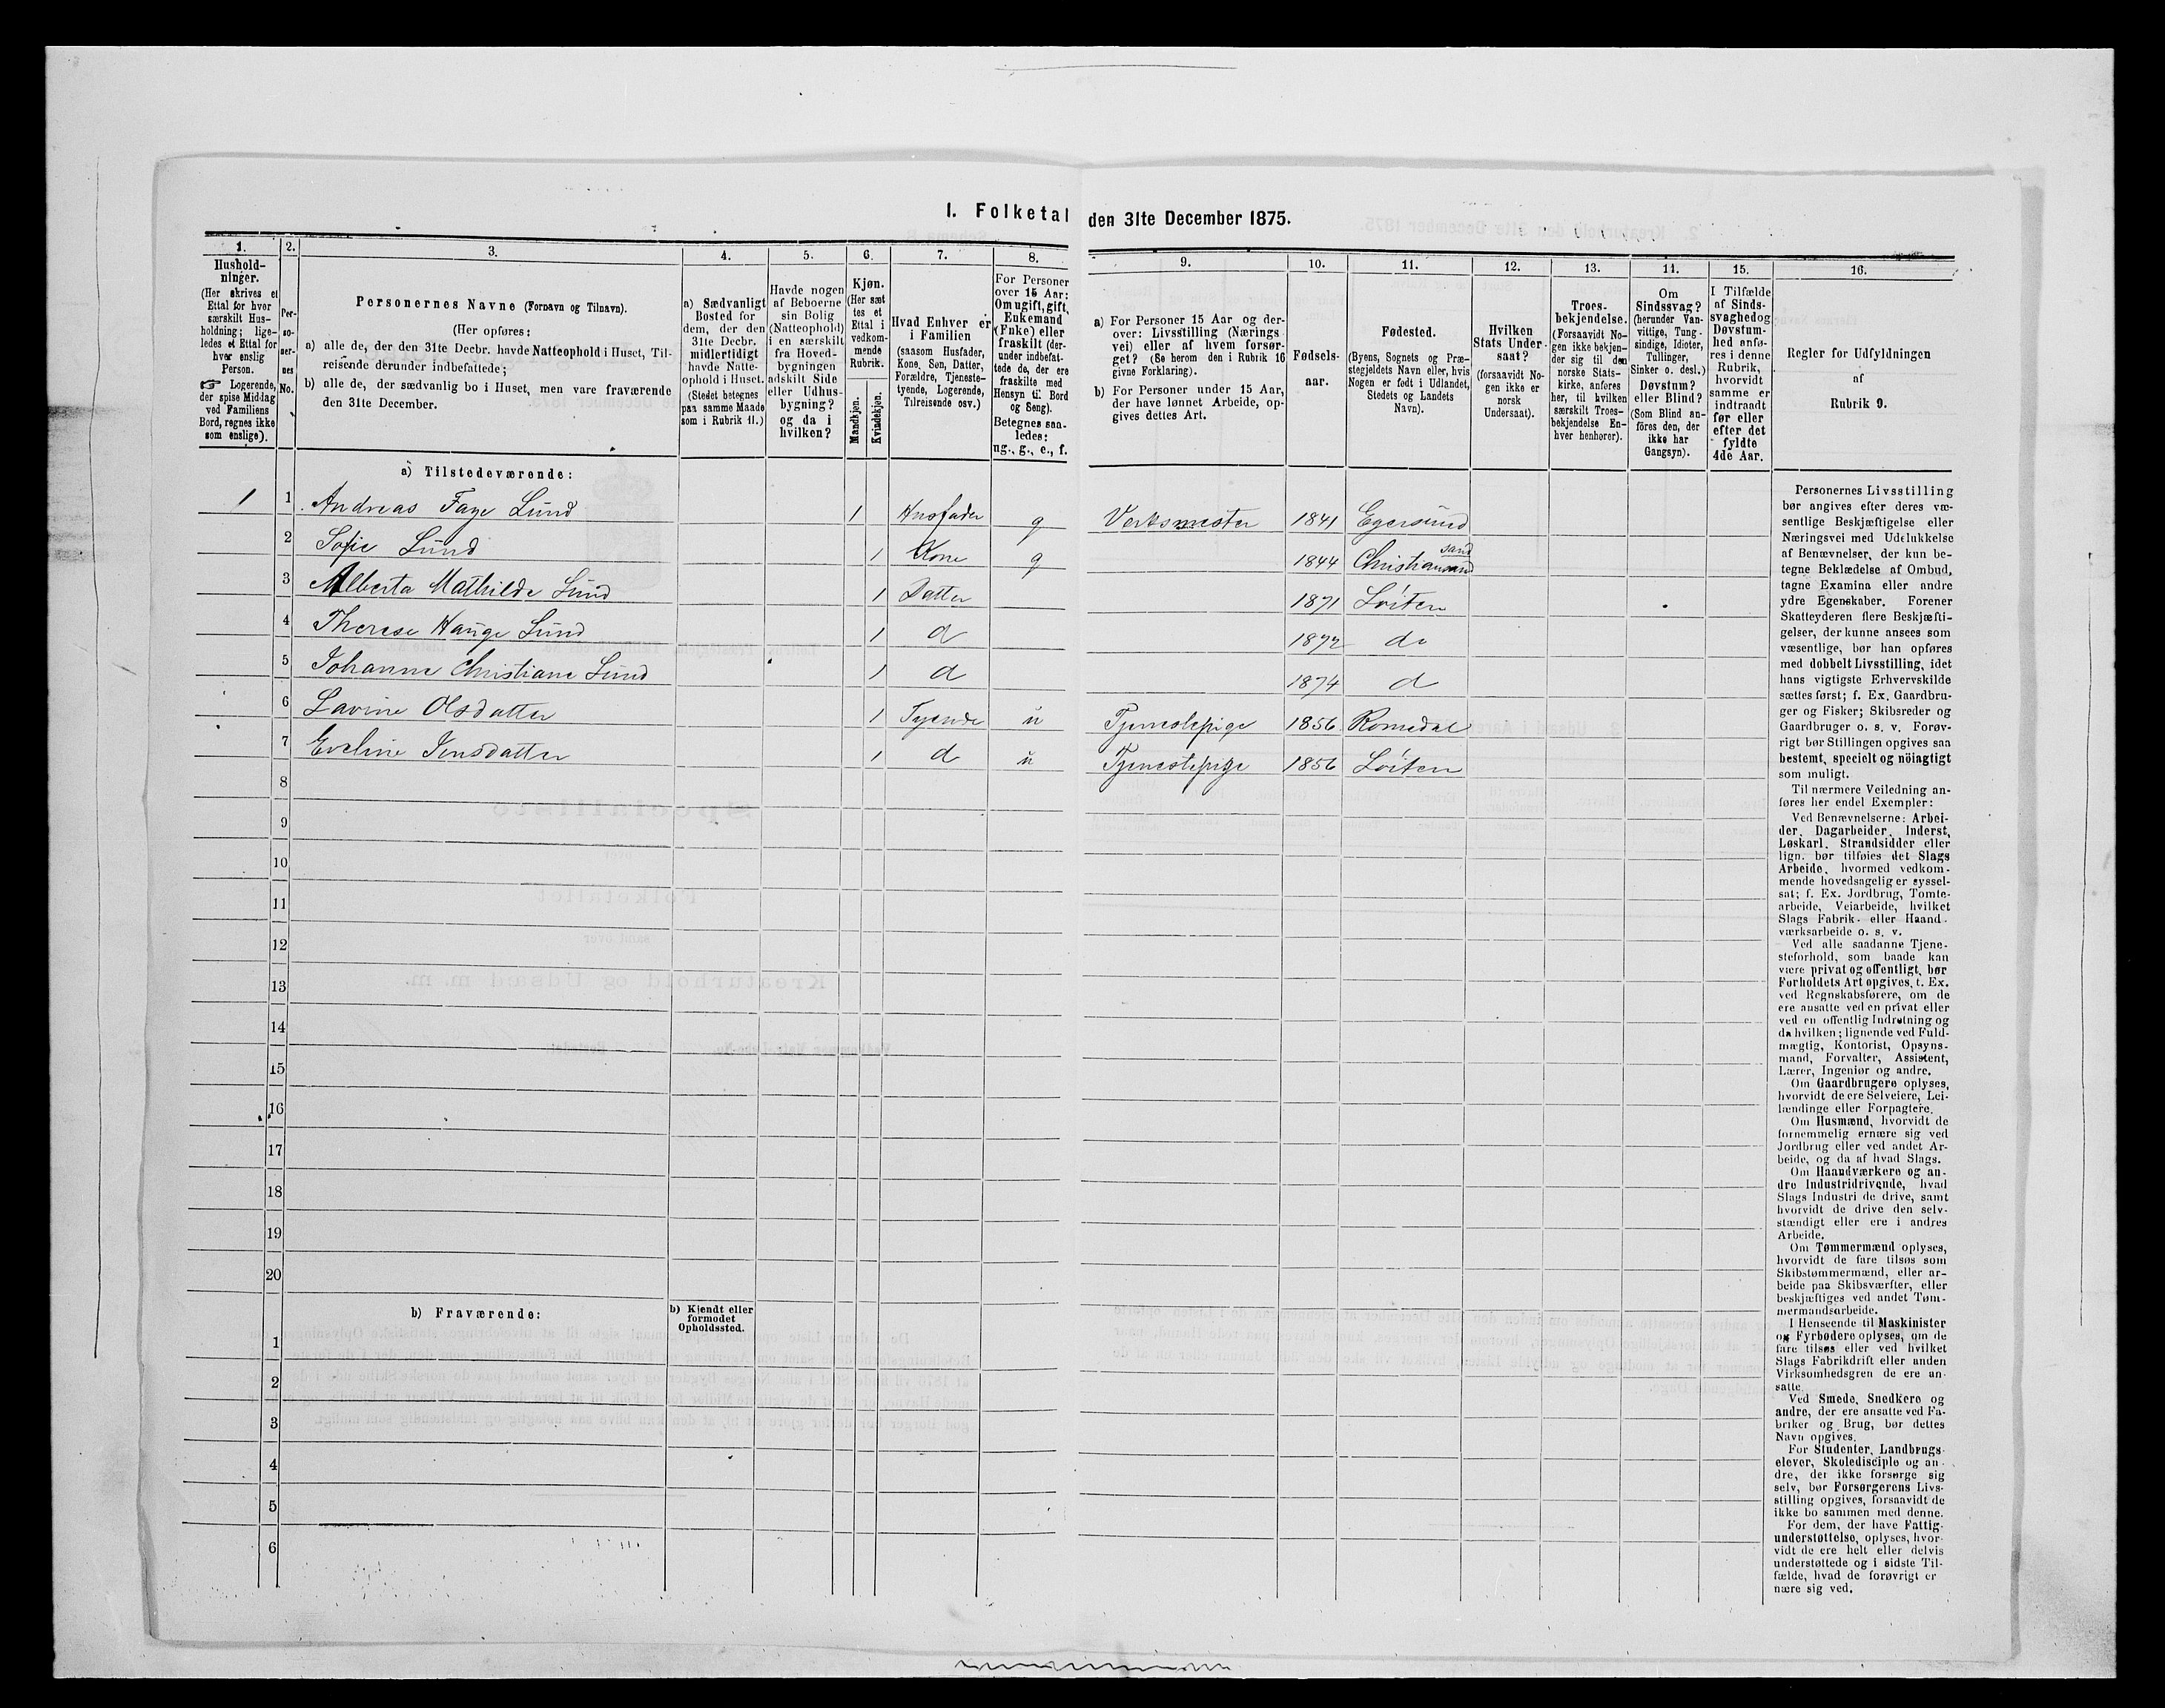 I. Folketal den 31te December 1875.
1.
Hushold-
ninger.
(Her skrives et
Ettal for hver
særskilt Hus-
holdning; lige-
ledes et Ettal for
hver enslig
Person.
☞ Logerende,
der spise Middag
ved Familiens
Bord, regnes ikke
som enslige).
2.
Per-
so-
ner-
nes
No.
3.
Personernes Navne (Fornavn og Tilnavn).
(Her opføres:
a) alle de, der den 31te Decbr. havde Natteophold i Huset, Til-
reisende derunder indbefattede;
b) alle de, der sædvanlig bo i Huset, men vare fraværende
den 31te December.
4.
a) Sædvanligt
Bosted for
dem, der den
31te Decbr.
midlertidigt
havde Natte-
ophold i Huset.
(Stedet betegnes
paa samme Maade
som i Rubrik 11.)
5.
Havde nogen
af Beboerne
sin Bolig
(Natteophold)
i en særskilt
fra Hoved-
bygningen
adskilt Side
eller Udhus-
bygning?
og da i
hvilken?
6.
Kjøn.
(Her sæt
tes et
Ettal i
vedkom-
mende
Rubrik.
Mandkjøn.
Kvindekjøn.
7.
Hvad Enhver er
i Familien
(saasom Husfader,
Kone, Søn, Datter,
Forældre, Tjeneste-
tyende, Logerende,
Tilreisende osv.)
8.
For Personer
over 15 Aar:
Om ugift, gift,
Enkemand
(Enke) eller
fraskilt (der-
under indbefat-
tede de, der ere
fraskilte med
Hensyn til Bord
og Seng).
Betegnes saa-
ledes:
ug., g., e., f.
9.
a) For Personer 15 Aar og der-
over: Livsstilling (Nærings
vei) eller af hvem forsør-
get? (Se herom den i Rubrik 16
givne Forklaring).
b) For Personer under 15 Aar,
der have lønnet Arbeide, op-
gives dettes Art.
10.
Fødsels-
aar.
11.
Fødested.
(Byens, Sognets og Præ-
stegjeldets Navn eller, hvis
Nogen er født i Udlandet,
Stedets og Landets
Navn).
12.
Hvilken
Stats Under-
saat?
(forsaavidt No-
gen ikke er
norsk
Undersaat).
13.
Troes-
bekjendelse.
(Forsaavidt No-
gen ikke bekjen-
der sig til den
norske Stats-
kirke, anføres
her, til hvilken
særskilt Troes-
bekjendelse En-
hver henhører).
14.
Om
Sindssvag?
(herunder Van-
vittige, Tung-
sindige, Idioter,
Tullinger,
Sinker o. desl.)
Døvstum?
eller Blind?
(Som Blind an-
føres den, der
ikke har
Gangsyn).
15.
I Tilfælde
af Sinds-
svaghedog
Døvstum-
hed anfø-
res i denne
Rubrik,
hvorvidt
samme er
indtraadt
før eller
efter det
fyldte
4de Aar.
16.
Regler for Udfyldningen
af
Rubrik 9.
a) Tilstedeværende:
1 1 Andreas Faye Lund 1 Husfader g Verksmester 1841 Egersund
2 Sofie Lund 1 Kone g 1844 Christiansand sand
3 Alberta Mathilde Lund 1 Datter 1871 Löiten
4 Therese Hauge Lund 1 d 1872 do
5 Johanne Christiane Lund 1 d 1874 d
6 Lavine Olsdatter 1 Tyende u Tjenestepige 1856 Romedal
7 Eveline Jensdatter 1 d u Tjenestepige 1856 Löiten
8
9
10
11
12
13
14
15
16
17
18
19
20
b) Fraværende:
b) Kjendt eller
formodet
Opholdssted.
1
2
3
4
5
6
Personernes Livsstilling
bør angives efter deres væ-
sentlige Beskjæftigelse eller
Næringsvei med Udelukkelse
af Benævnelser, der kun be-
tegne Beklædelse af Ombud,
tagne Examina eller andre
ydre Egenskaber. Forener
Skatteyderen flere Beskjæfti-
gelser, der kunne ansees som
væsentlige, bør han opføres
med dobbelt Livsstilling, idet
hans vigtigste Erhvervskilde
sættes først; f. Ex. Gaardbru-
ger og Fisker; Skibsreder og
Gaardbruger o. s. v. Forøv-
rigt bør Stillingen opgives saa
bestemt, specielt og nöiagtigt
som muligt.
Til nærmere Veiledning an-
føres her endel Exempler:
Ved Benævnelserne: Arbei-
der, Dagarbeider, Inderst,
Løskarl, Strandsidder eller
lign. bør tilføies det Slags
Arbeide, hvormed vedkom-
mende hovedsagelig er syssel-
sat; f. Ex. Jordbrug, Tomte-
arbeide, Veiarbeide, hvilket
Slags Fabrik- eller Haand-
værksarbeide o. s. v.
Ved alle saadanne Tjene-
steforhold, som baade kan
være privat og offentligt, bør
Forholdets Art opgives, f. Ex.
ved Regnskabsførere, om de
ere ansatte ved en privat eller
ved en offentlig Indretning og
da hvilken; lignende ved Fuld-
mægtig, Kontorist, Opsyns-
mand, Forvalter, Assistent,
Lærer, Ingeniør og andre.
Om Gaardbrugere oplyses,
hvorvidt de ere Selveiere, Lei-
lændinge eller Forpagtere.
Om Husmænd, hvorvidt de
fornemmelig ernære sig ved
Jordbrug eller ved andet Ar-
beide, og da af hvad Slags.
Om Haandværkere og an-
dre Industridrivende, hvad
Slags Industri de drive, samt
hvorvidt de drive den selv-
stændigt eller ere i andres
Arbeide.
Om Tømmermænd oplyses,
hvorvidt de fare tilsøs som
Skibstømmermænd, eller ar-
beide paa Skibsværfter, eller
beskjæftiges ved andet Tøm-
mermandsarbeide.
I Henseende til Maskinister
og Fyrbødere oplyses, om de
fare tilsøs eller ved hvilket
Slags Fabrikdrift eller anden
Virksomhedsgren de ere an-
satte.
Ved Smede, Snedkere og
andre, der ere ansatte ved Fa-
briker og Brug, bør dettes
Navn opgives.
For Studenter, Landbrugs-
elever, Skoledisciple og an-
dre, der ikke forsørge sig
selv, bør Forsørgerens Livs-
stilling opgives, forsaavidt de
ikke bo sammen med denne.
For dem, der have Fattig-
understøttelse, oplyses, hvor-
vidt de ere helt eller delvis
understøttede og i sidste Til-
fælde, hvad de forøvrigt er
nære sig ved.